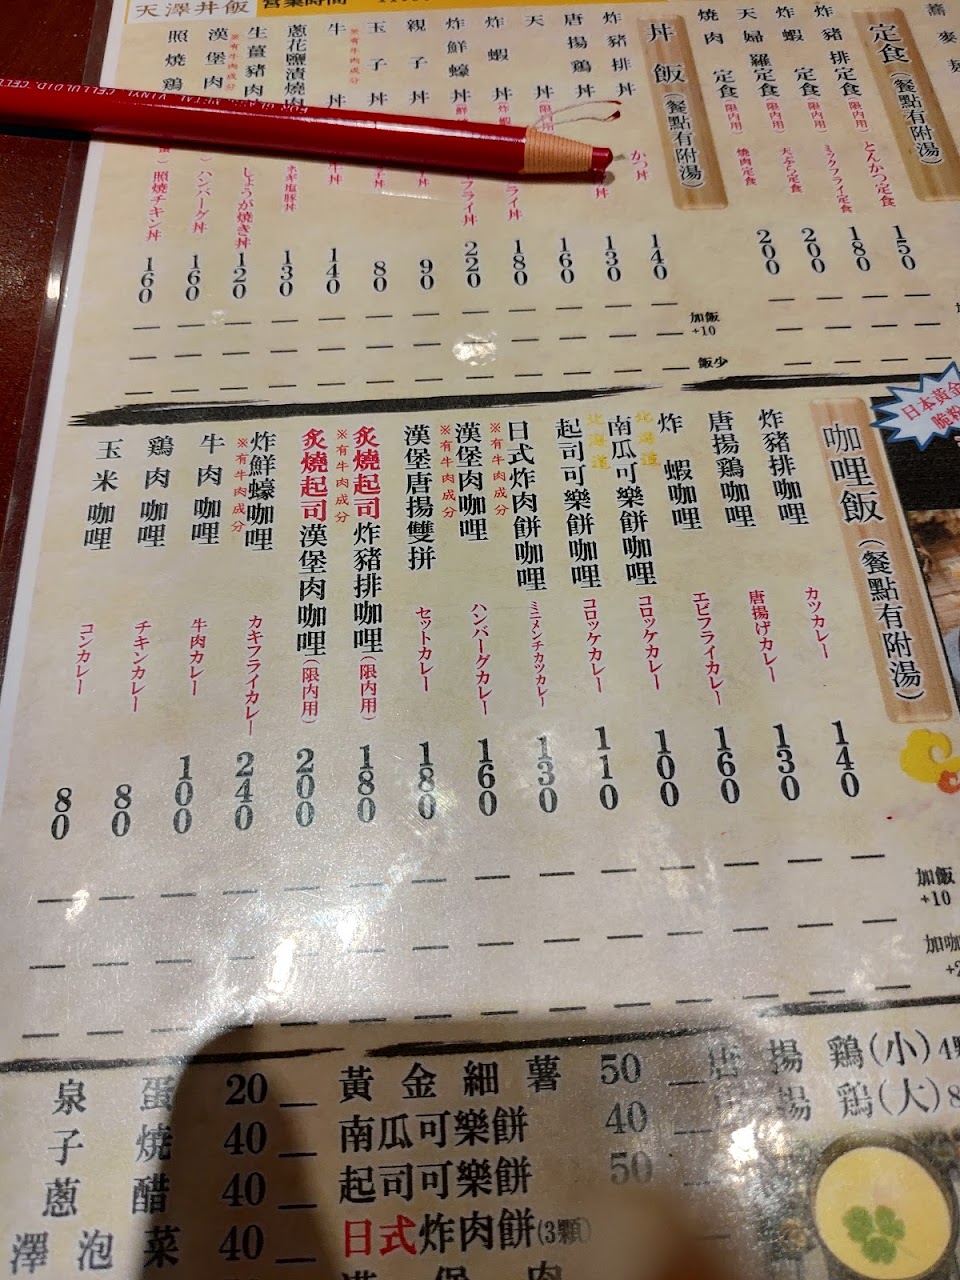 天澤丼飯
營業時間
定食(餐點有附湯)
炸豬排定食(限內用) とんかつ定食 150
炸蝦 定食(限內用) ミックフライ定食 180
天婦羅定食(限內用) 天ぷら定食 200
燒肉 定食(限內用) 焼肉定食 200
丼飯(餐點有附湯)
炸豬排丼 かつ丼 140
唐揚鶏丼 130
天丼(限內用) 160
炸蝦丼 180
炸鮮蠔丼 220
親子丼 90
玉子丼 80
牛丼 140
※有牛肉成分
蔥花鹽漬燒肉 ネギ塩豚丼 130
生薑豬肉 しょうが焼き丼 120
漢堡肉 ハンバーグ丼 160
※有牛肉成分
照燒鶏 照焼チキン丼 160
加飯
+10
飯少
日本黃金
咖哩飯(餐點有附湯)
炸豬排咖哩 カツカレー 140
唐揚鶏咖哩 唐揚げカレー 130
炸蝦咖哩 エビフライカレー 160
北海道
南瓜可樂餅咖哩 コロッケカレー 100
北海道
起司可樂餅咖哩 コロッケカレー 110
日式炸肉餅咖哩 ミニメンチカツカレー 130
※有牛肉成分
漢堡肉咖哩 ハンバーグカレー 160
※有牛肉成分
漢堡唐揚雙拼 セットカレー 180
炙燒起司炸豬排咖哩(限內用) 180
※有牛肉成分
炙燒起司漢堡肉咖哩(限內用) 200
炸鮮蠔咖哩 カキフライカレー 240
※有牛肉成分
牛肉咖哩 牛肉カレー 100
鶏肉咖哩 チキンカレー 80
玉米咖哩 コンカレー 80
加飯
+10
加咖
泉蛋 20
子燒 40
蔥醋 40
澤泡菜 40
黃金細薯 50
南瓜可樂餅 40
起司可樂餅 50
日式炸肉餅(3顆)
漢堡肉
唐揚鶏(小)4顆
揚鶏(大)8
CELLULOID, VINYL